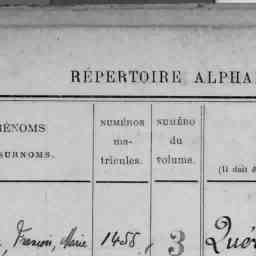 RÉPERTOIRE ALPHA
RÉNOMS
SURNOMS.
NUMÉROS
ma-
tricules.
NUMÉRO
du
volume.
(Il doit ê
François, Marie 1455 3 Qué